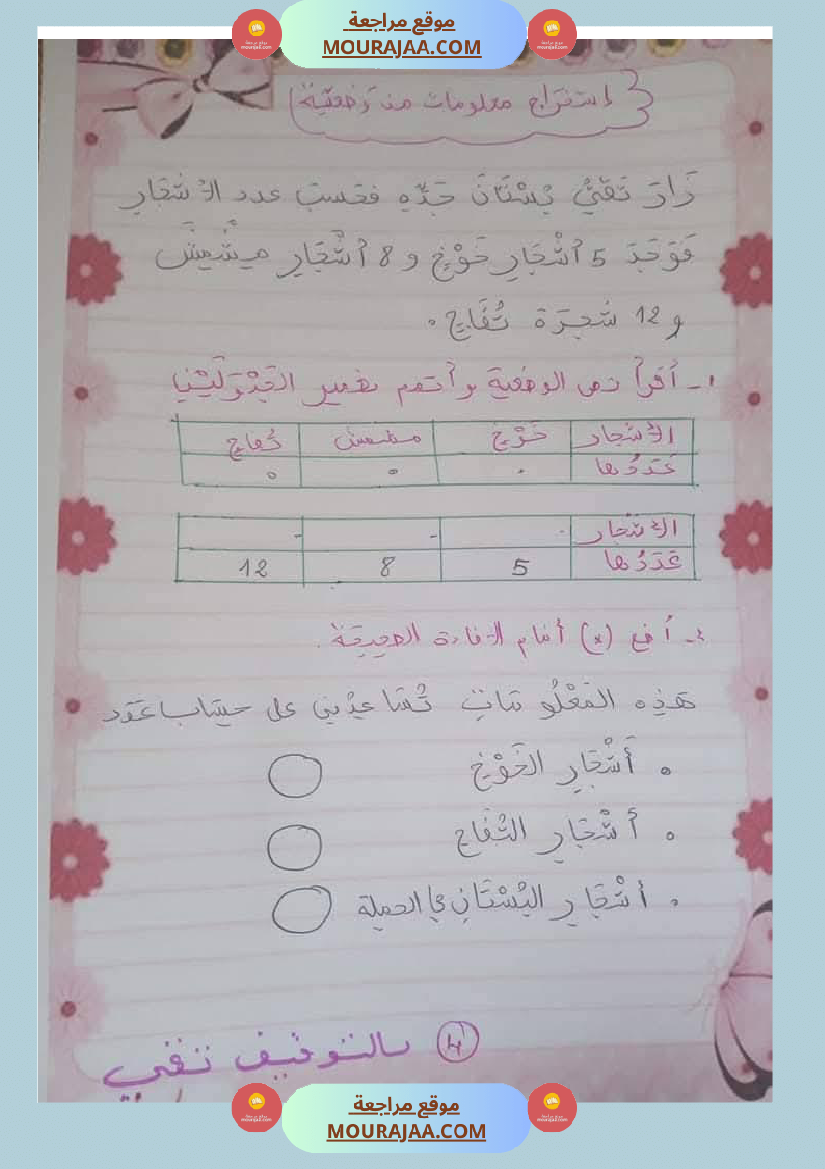 موقع مراجعة
MOURAJAA.COM
استخراج معلومات من وضعيّة
زَارَ تَقِيُّ بُسْتَانَ جَدِّهِ فحسب عدد الأشجار
فَوَجَدَ 5 أَشْجَارِ خَوْخٍ و 8 أَشْجَارِ مِشْمِشٍ
و 12 شجرَة تُفَّاحٍ.
1- أَقرأ نص الوضعية وأتمم تعمير الجَدْوَلَيْنِ
الأشجار خَوْخ مشمش تفاح
عَدَدُها . . .
الأشجار - -
عَدَدُها 5 8 12
2- أضع (x) أمام الإفادة الصحيحة.
هَذِه المَعْلُومَاتِ تُسَاعِدُنِي على حساب عَدَد
• أَشْجَارِ الخَوْخِ
• أَشْجَارِ التُفَّاحِ
• أَشْجَارِ البُسْتَانِ في الجملة
4 بالتوفيق تقي
موقع مراجعة
MOURAJAA.COM